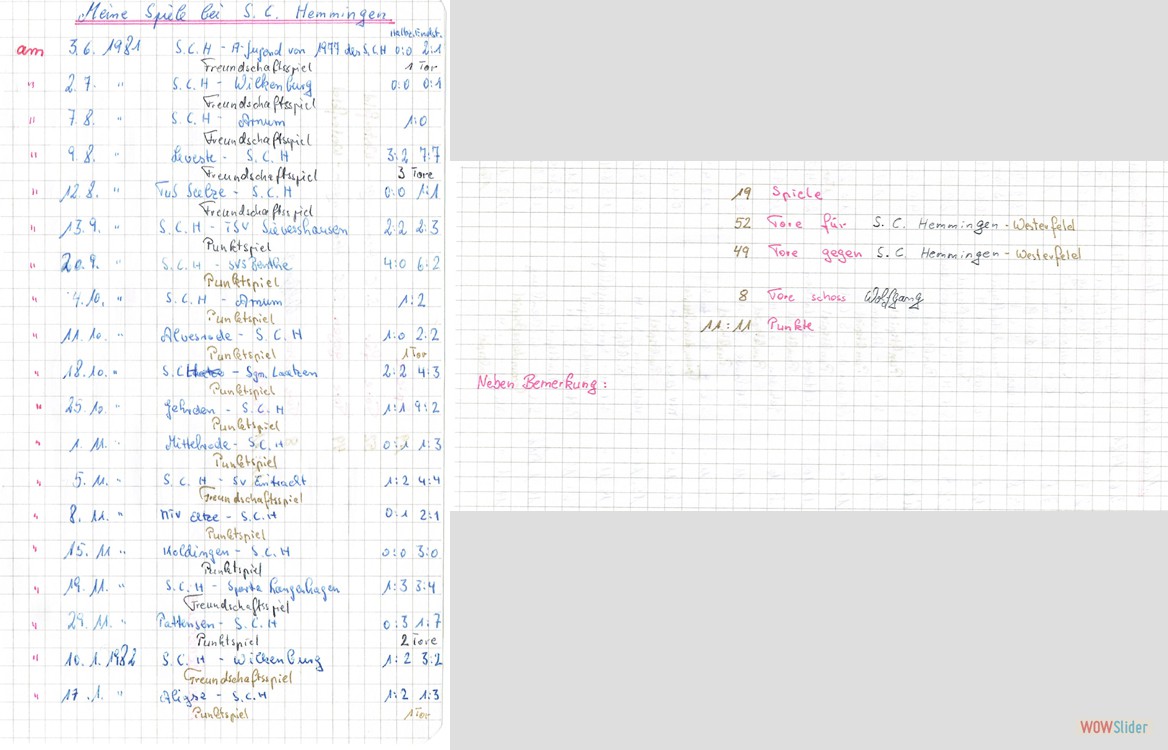 Meine Spiele bei S. C. Hemmingen
Halbz. Endst.
am 3.6. 1981 S.C.H - A-Jugend von 1977 des S.C.H 0:0 2:1
Freundschaftsspiel 1 Tor
" 2.7. " S.C.H - Wilkenburg 0:0 0:1
Freundschaftsspiel
" 7.8. " S.C.H - Arnum 1:0
Freundschaftsspiel
" 9.8. " Leveste - S.C.H 3:2 7:7
Freundschaftsspiel 3 Tore
" 12.8. " TuS Seelze - S.C.H 0:0 1:1
Freundschaftsspiel
" 13.9. " S.C.H - TSV Sievershausen 2:2 2:3
Punktspiel
" 20.9. " S.C.H - SVS Benthe 4:0 6:2
Punktspiel
" 4.10. " S.C.H - Arnum 1:2
Punktspiel
" 11.10. " Alvesrode - S.C.H 1:0 2:2
Punktspiel 1 Tor
" 18.10. " S.C - Sgm. Laatzen 2:2 4:3
Punktspiel
" 25.10. " Gehrden - S.C.H 1:1 9:2
Punktspiel
" 1.11. " Mittelrode - S.C.H 0:1 1:3
Punktspiel
" 5.11. " S.C.H - SV Eintracht 1:2 4:4
Freundschaftsspiel
" 8.11. " MTV - S.C.H 0:1 2:1
Punktspiel
" 15.11. " Koldingen - S.C.H 0:0 3:0
Punktspiel
" 19.11. " S.C.H - Sparta Langenhagen 1:3 3:4
Freundschaftsspiel
" 29.11. " Pattensen - S.C.H 0:3 1:7
Punktspiel 2 Tore
" 10.1. 1982 S.C.H - Wilkenburg 1:2 3:2
Freundschaftsspiel
" 17.1. " Aligse - S.C.H 1:2 1:3
Punktspiel 1 Tor
19 Spiele
52 Tore für S. C. Hemmingen - Westerfeld
49 Tore gegen S. C. Hemmingen - Westerfeld
8 Tore schoss Wolfgang
11:11 Punkte
Neben Bemerkung:
WOWSlider